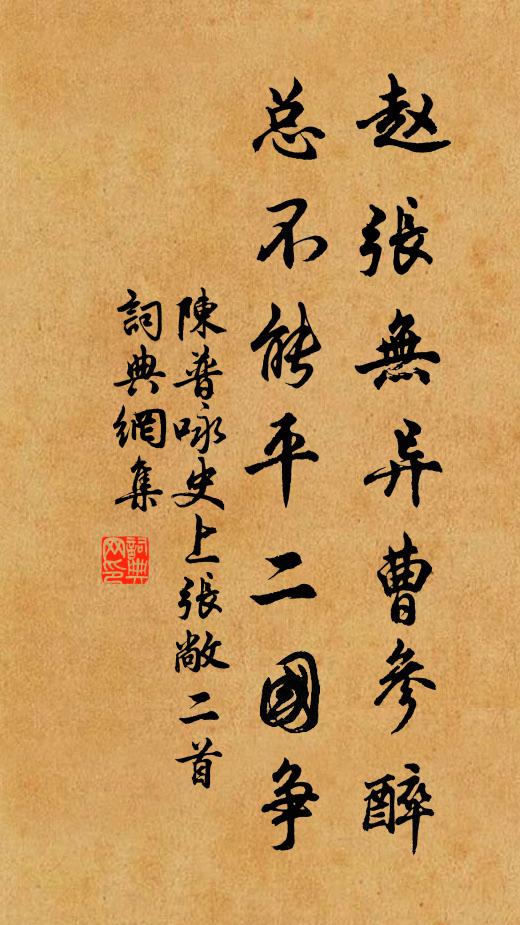 赵張無异曹參醉
总不能平二國争
陳普咏史上張敞二首
詞典網集
詞典网印